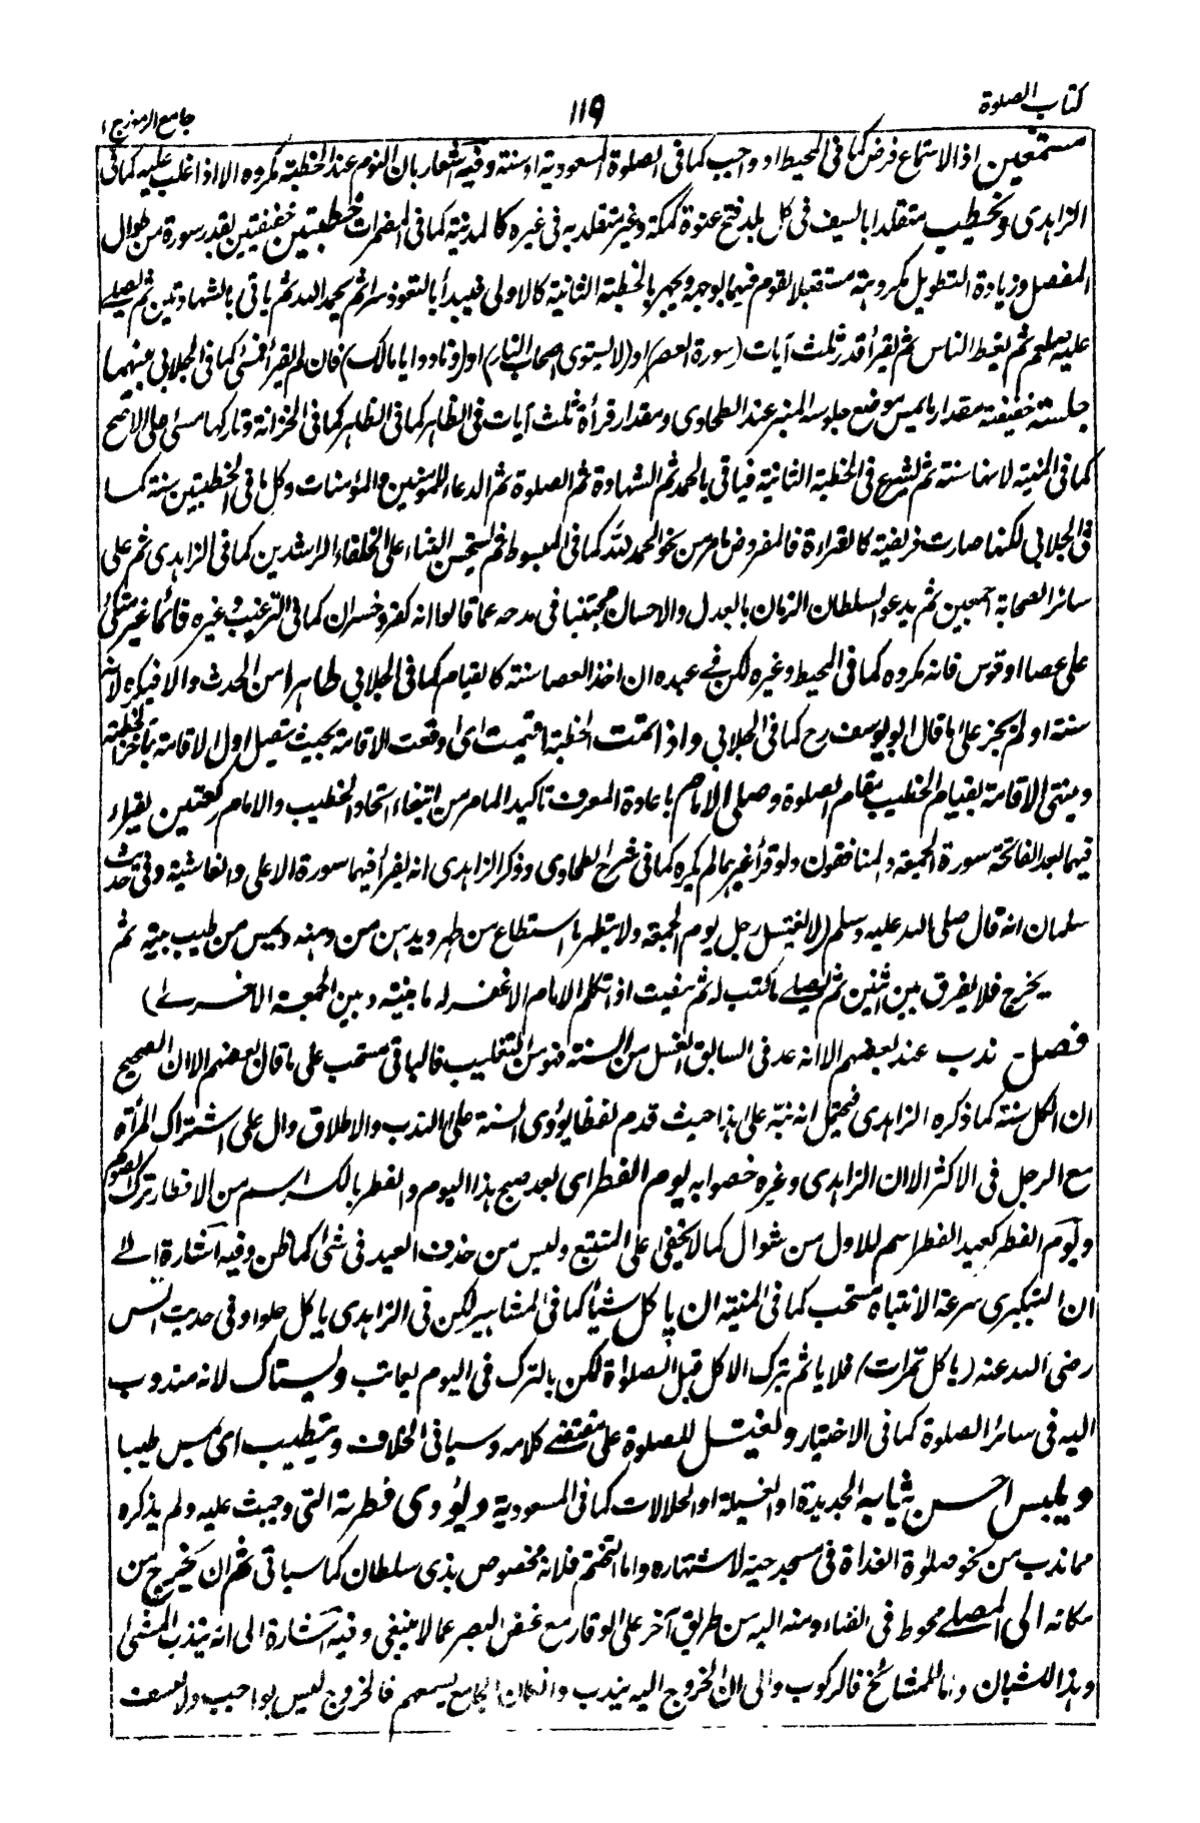 كتاب الصلوة
١١٩
جامع الرموز ج ١
مستمعين اذ الاستماع فرض كما فى المحيط او واجب كما فى الصلوة المسعودية او سنة وفيه اشعار بان النوم عند الخطبة مكروه الا اذا غلب عليه كما فى
الزاهدى ويخطب متقلدا بالسيف فى كل بلد فتح عنوة كمكة وغير متقلد به فى غيره كالمدينة كما فى المضمرات خطبتين خفيفتين بقدر سورة من طوال
المفصل وزيادة التطويل مكروهة مستقبلا لقوم فيهما بوجهه ويجهر بالخطبة الثانية كالاولى فيبدأ بالتعوذ سرا ثم يحمد الله ثم ياتى بالشهادتين ثم يصلى
عليه صلعم ثم يعظ الناس ثم يقرأ قدر ثلث آيات (سورة العصر) او (لا يستوى اصحاب النار) او (ونادوا يا مالك) فان لم يقرأ فمسئ كما فى الجلابى بينهما
جلسة خفيفة مقدار ما يمس موضع جلوسه المنبر عند الطحاوى ومقدار قرأة ثلث آيات فى الظاهر كما فى الخزانة وتاركها مسئ على الاصح
كما فى المنية لانها سنة ثم يشرع فى الخطبة الثانية فياتى بالحمد ثم الشهادة ثم الصلوة ثم الدعاء للمؤمنين والمؤمنات وكل ما فى الخطبتين سنة كما
فى الجلابى لكنها صارت فريضة كالقراءة فالمفروض ما مر من نحو الحمد لله كما فى المبسوط ثم يستحسن الثناء على الخلفاء الراشدين كما فى الزاهدى ثم على
سائر الصحابة اجمعين ثم يدعو لسلطان الزمان بالعدل والاحسان مجتنبا فى مدحه عما قالوا انه كفر وخسران كما فى الترغيب وغيره قائما غير متكئ
على عصا او قوس فانه مكروه كما فى المحيط وغيره لكن فى عهده ان اخذ العصا سنة كالقيام كما فى الجلابى طاهرا من الحدث والا فيكره لانه
سنة او لم يجز على ما قال ابو يوسف رح كما فى الجلابى واذا تمت الخطبة اقيمت اى اوقعت الاقامة بحيث يتصل اول الاقامة بآخر الخطبة
وينتهى الاقامة بقيام الخطيب مقام الصلوة وصلى الامام باعادة المعرف تاكيد المامر من ابتغاء اتحاد الخطيب والامام ركعتين يقرأ
فيهما بعد الفاتحة سورة الجمعة والمنافقون ولو قرأ غيرهما لم يكره كما فى شرح الطحاوى وذكر الزاهدى انه يقرأ فيهما سورة الاعلى والغاشية وفى حديث
سلمان انه قال صلى الله عليه وسلم (لا يغتسل رجل يوم الجمعة ولا يتطهر ما استطاع من طهر ويدهن من دهنه ويمس من طيب بيته ثم
يخرج فلا يفرق بين اثنين ثم يصلى ما كتب له ثم ينصت اذا تكلم الامام الا غفر له ما بينه وبين الجمعة الاخرى)
فصل ندب عند بعضهم الا انه عد فى السابق الغسل من السنة فهو من التغليب فالباقى مستحب على ما قال بعضهم الا ان الصحيح
ان الكل سنة كما ذكره الزاهدى فيحتمل انه نبّه على هذا حيث قدم لفظا يؤدى السنة على الندب والاطلاق دال على اشتراك المرأة
مع الرجل فى الاكثر الا ان الزاهدى وغيره خصوا به يوم الفطر اى بعد صبح هذا اليوم والفطر بالكسر اسم من الافطار ترك الصوم
ويوم الفطر كعيد الفطر اسم للاول من شوال كما لا يخفى على المتتبع وليس من حذف العيد فى شئ كما ظن وفيه اشارة الى
ان التبكير سرعة الانتباه مستحب كما فى المنية ان ياكل شيأ كما فى المشاهير لكن فى الزاهدى ياكل حلوا وفى حديث انس
رضى الله عنه (ياكل تمرات) فلا ياثم بترك الاكل قبل الصلوٰة لكن بالترك فى اليوم يعاتب ويستاك لانه مندوب
اليه فى سائر الصلوة كما فى الاختيار ويغتسل للصلوة على مقتضى كلامه وسياتى الخلاف ويتطيب اى يمس طيبا
ويلبس احسن ثيابه الجديدة او الغسيلة او الحلالات كما فى المسعودية ويؤدى فطرته التى وجبت عليه ولم يذكره
مما ندب من نحو صلوٰة الغداة فى مسجد حيّه لاشتهاره واما التختم فلانه مخصوص بذى سلطان كما سياتى ثم ان يخرج من
مكانه الى المصلى محوط فى الفناء ومنه اليه من طريق آخر على الوقار مع غض البصر عما لا ينبغى وفيه اشارة الى انه يندب المشئ
وهذا للشبان واما للمشائخ فالركوب والى ان الخروج اليه يندب وان كان الجامع يسعهم فالخروج ليس بواجب